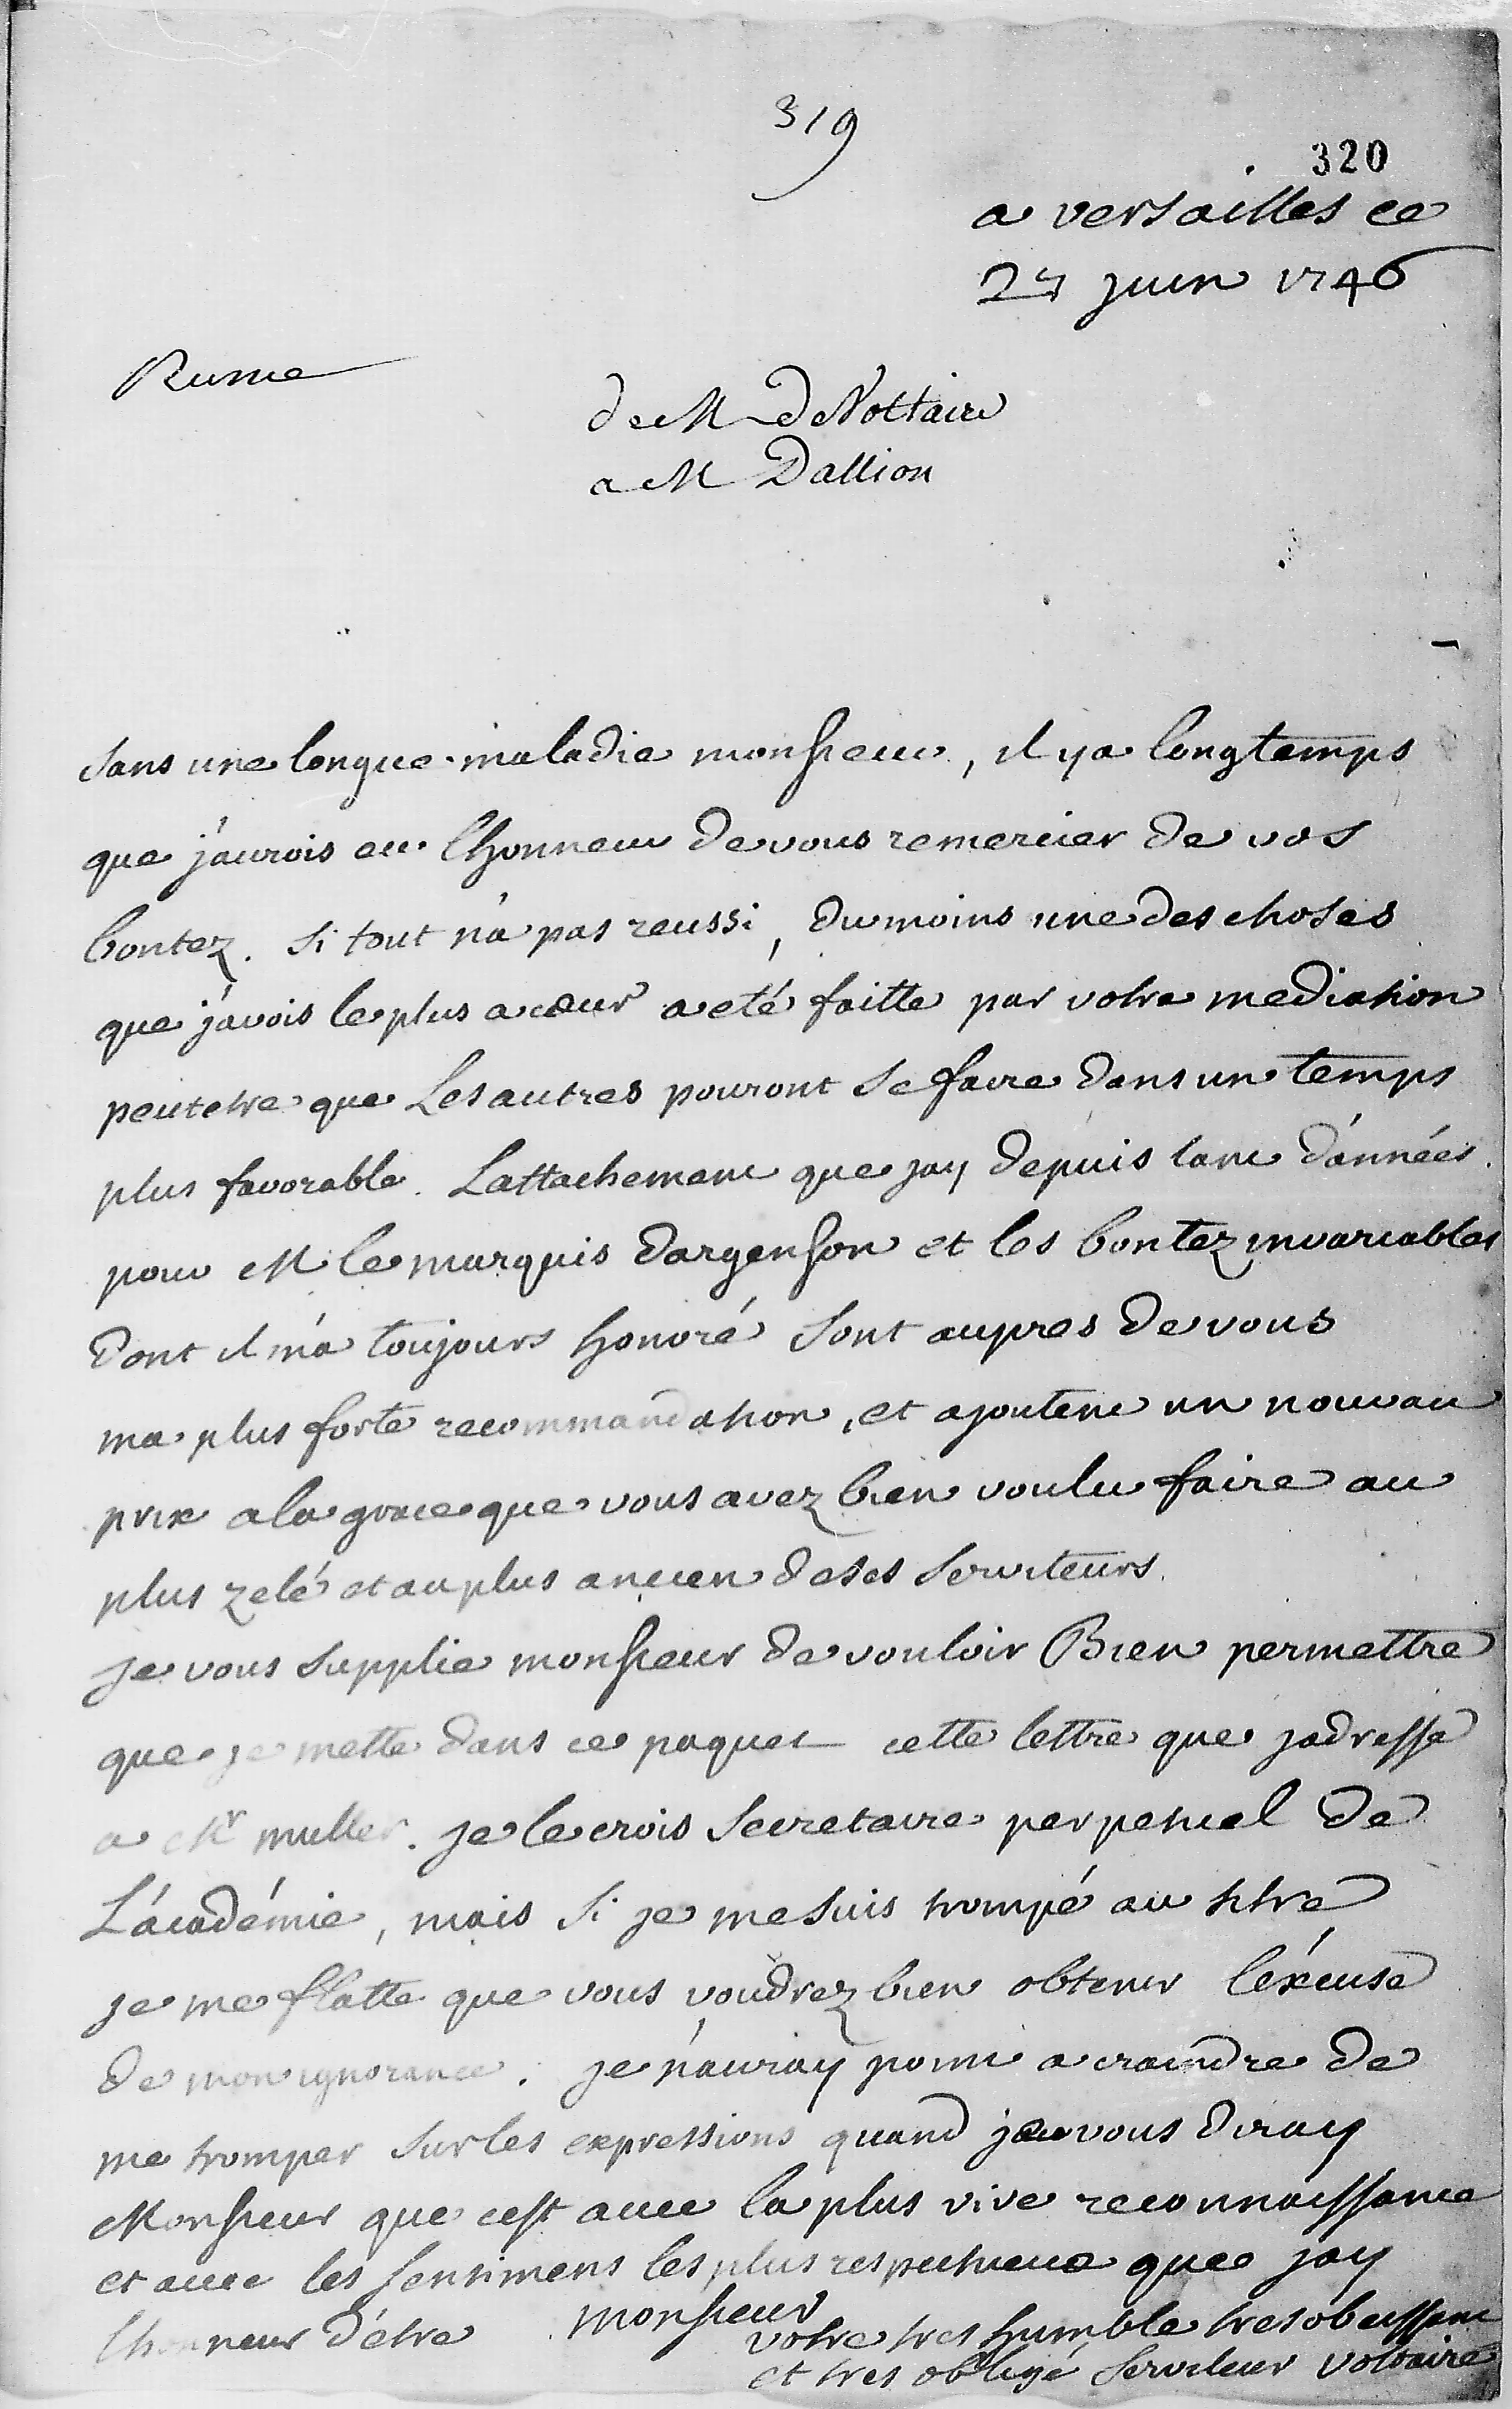 319
320
a versailles ce
27 juin 1746
Russie
de M de Voltaire
a M Dallion
sans une longue maladie monsieur, il y a longtemps
que j'aurois eu lhonneur de vous remercier de vos
bontez. si tout n'a pas reussi, du moins une des choses
que j'avois le plus a cœur a eté faitte par votre mediation
peutetre que Les autres pouront se faire dans un temps
plus favorable. Lattachement que jay depuis tant d'années
pour M le marquis dargenson et les bontez invariables
dont il m'a toujours honoré sont aupres de vous
ma plus forte recommandation, et ajoutent un nouvau
prix a la grace que vous avez bien voulu faire au
plus zelé et au plus ancien de ses serviteurs.
je vous supplie monsieur de vouloir Bien permettre
que je mette dans ce paquet cette lettre que jadresse
a Mr muller. je le crois secretaire perpetuel de
L'académie, mais si je me suis trompé au titre
je me flatte que vous voudrez bien obtenir l'éxcuse
de mon ignorance. je n'auray point a craindre de
me tromper sur les expressions quand je vous diray
Monsieur que cest avec la plus vive reconnaissance
et avec les sentimens les plus respectueux que jay
lhonneur d'étre monsieur
votre tres humble tres obeissant
et tres obligé serviteur voltaire